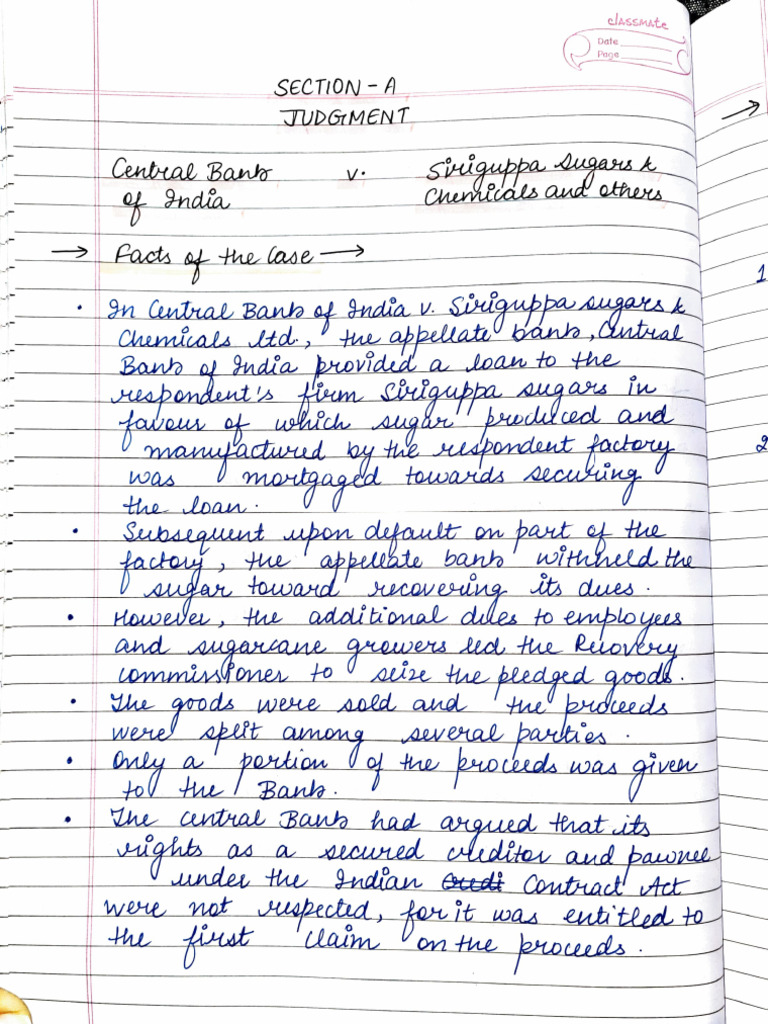 classmate
Date
Page
SECTION - A
JUDGMENT
Central Bank v. Siriguppa Sugars &
of India Chemicals and others
→ Facts of the Case →
• In Central Bank of India v. Siriguppa sugars &
Chemicals Ltd., the appellate bank, Central
Bank of India provided a loan to the
respondent's firm Siriguppa sugars in
favour of which sugar produced and
manufactured by the respondent factory
was mortgaged towards securing
the loan.
• Subsequent upon default on part of the
factory, the appellate bank withheld the
sugar toward recovering its dues.
• However, the additional dues to employees
and sugarcane growers led the Recovery
commissioner to seize the pledged goods.
• The goods were sold and the proceeds
were split among several parties.
• Only a portion of the proceeds was given
to the Bank.
• The central Bank had argued that its
rights as a secured creditor and pawnee
under the Indian Credi Contract Act
were not respected, for it was entitled to
the first claim on the proceeds.
→
1
2